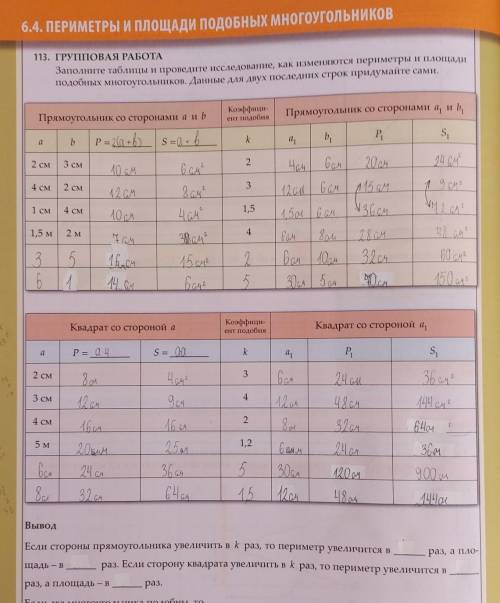 6.4. ПЕРИМЕТРЫ И ПЛОЩАДИ ПОДОБНЫХ МНОГОУГОЛЬНИКОВ
113. ГРУППОВАЯ РАБОТА
Заполните таблицы и проведите исследование, как изменяются периметры и площади
подобных многоугольников. Данные для двух последних строк придумайте сами.
Прямоугольник со сторонами a и b Коэффици-ент подобия Прямоугольник со сторонами a₁ и b₁
a b P = 2(a+b) S = a · b k a₁ b₁ P₁ S₁
2 см 3 см 10 см 6 см² 2 4см 6см 20см 24 см²
4 см 2 см 12 см 8 см² 3 12см 6см 15 см 9 см²
1 см 4 см 10 см 4 см² 1,5 1,5см 6 см 36 см
1,5 м 2 м 7 см 4 8см 28 см
3 5 16 см 15 см² 2 6см 10см 32см 60 см²
6 1 14 см 6 см² 5 30см 5 см 70см 150 см²
Квадрат со стороной a Коэффици-ент подобия Квадрат со стороной a₁
a P = a·4 S = aa k a₁ P₁ S₁
2 см 8см 4см² 3 6см 24 см 36 см²
3 см 12см 9см 4 12см 48см 144 см²
4 см 16см 16 см 2 8см 32см 64см
5 м 25м 1,2 24см 36м
6см 24 см 36 см 5 30см 120см 900см
8см 32см 64см 1,5 12см 48см 144см
Вывод
Если стороны прямоугольника увеличить в k раз, то периметр увеличится в ____ раз, а пло-
щадь – в ____ раз. Если сторону квадрата увеличить в k раз, то периметр увеличится в ____
раз, а площадь – в ____ раз.